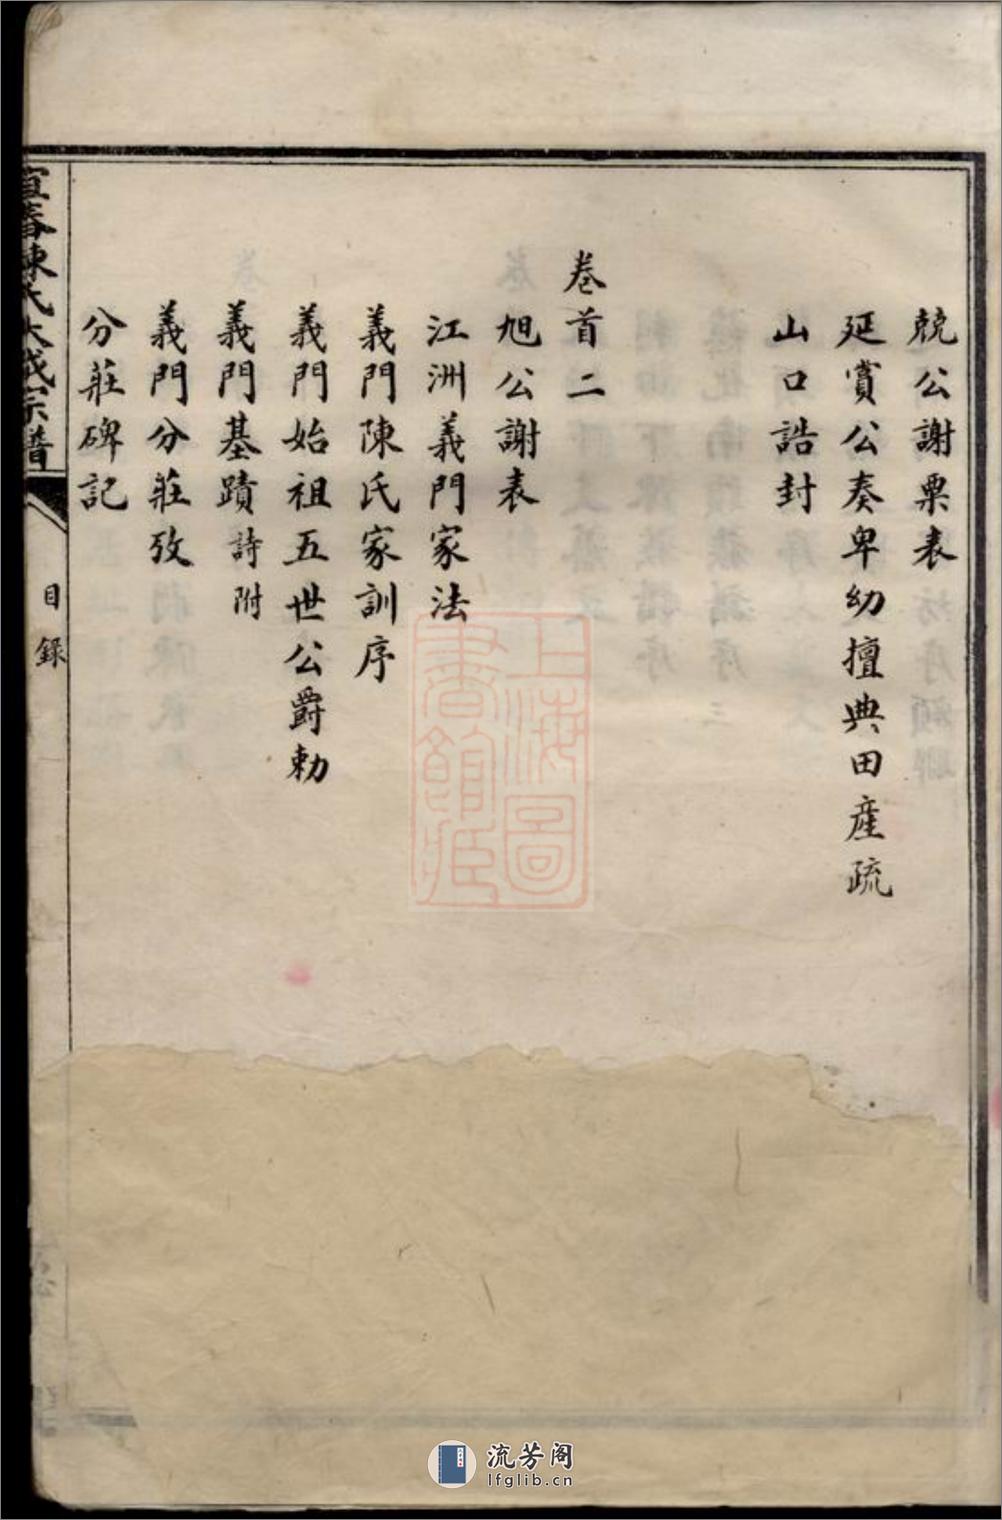 兢公謝粟表
延賞公奏卑幼擅典田產疏
山口誥封
卷首二
旭公謝表
江洲義門家法
義門陳氏家訓序
義門始祖五世公爵勅
義門基蹟詩附
義門分莊攷
分莊碑記
宜春陳氏大成宗譜
目錄
上海圖書館藏
流芳阁
lfglib.cn